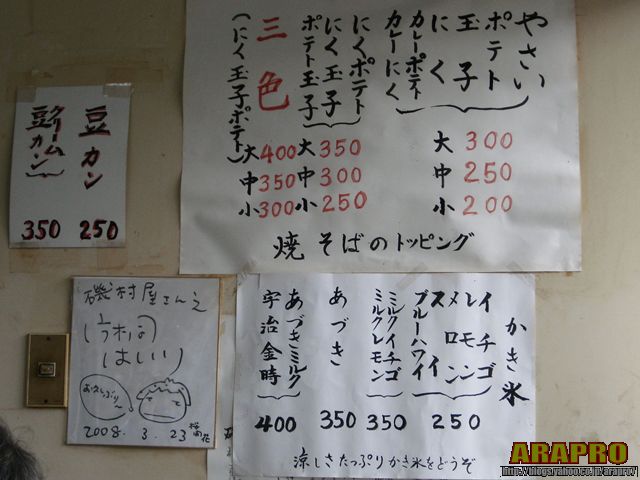 やさい
ポテト
玉子
にく
カレーポテト
カレーにく
にくポテト
にく玉子
ポテト玉子
三色
(にく玉子ポテト)
大 300
中 250
小 200
大 350
中 300
小 250
大 400
中 350
小 300
焼そばのトッピング
豆カン
250
クリーム
豆カン
350
かき氷
イチゴ
レモン
メロン
スイ
ブルーハワイ
250
ミルクイチゴ
ミルクレモン
350
あづき
350
あづきミルク
宇治金時
400
涼しさたっぷりかき氷をどうぞ
磯村屋さんえ
はいい
2008. 3. 23
ARAPRO